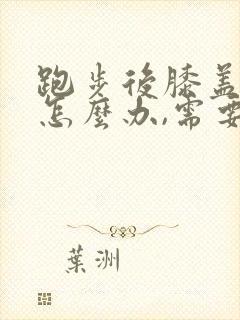 跑步後膝蓋
怎麼办,需要
葉洲